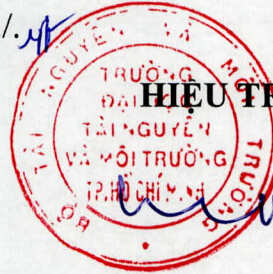 /.
BỘ TÀI NGUYÊN VÀ MÔI TRƯỜNG
TRƯỜNG
ĐẠI HỌC
TÀI NGUYÊN
VÀ MÔI TRƯỜNG
TP.HỒ CHÍ MINH
HIỆU TR